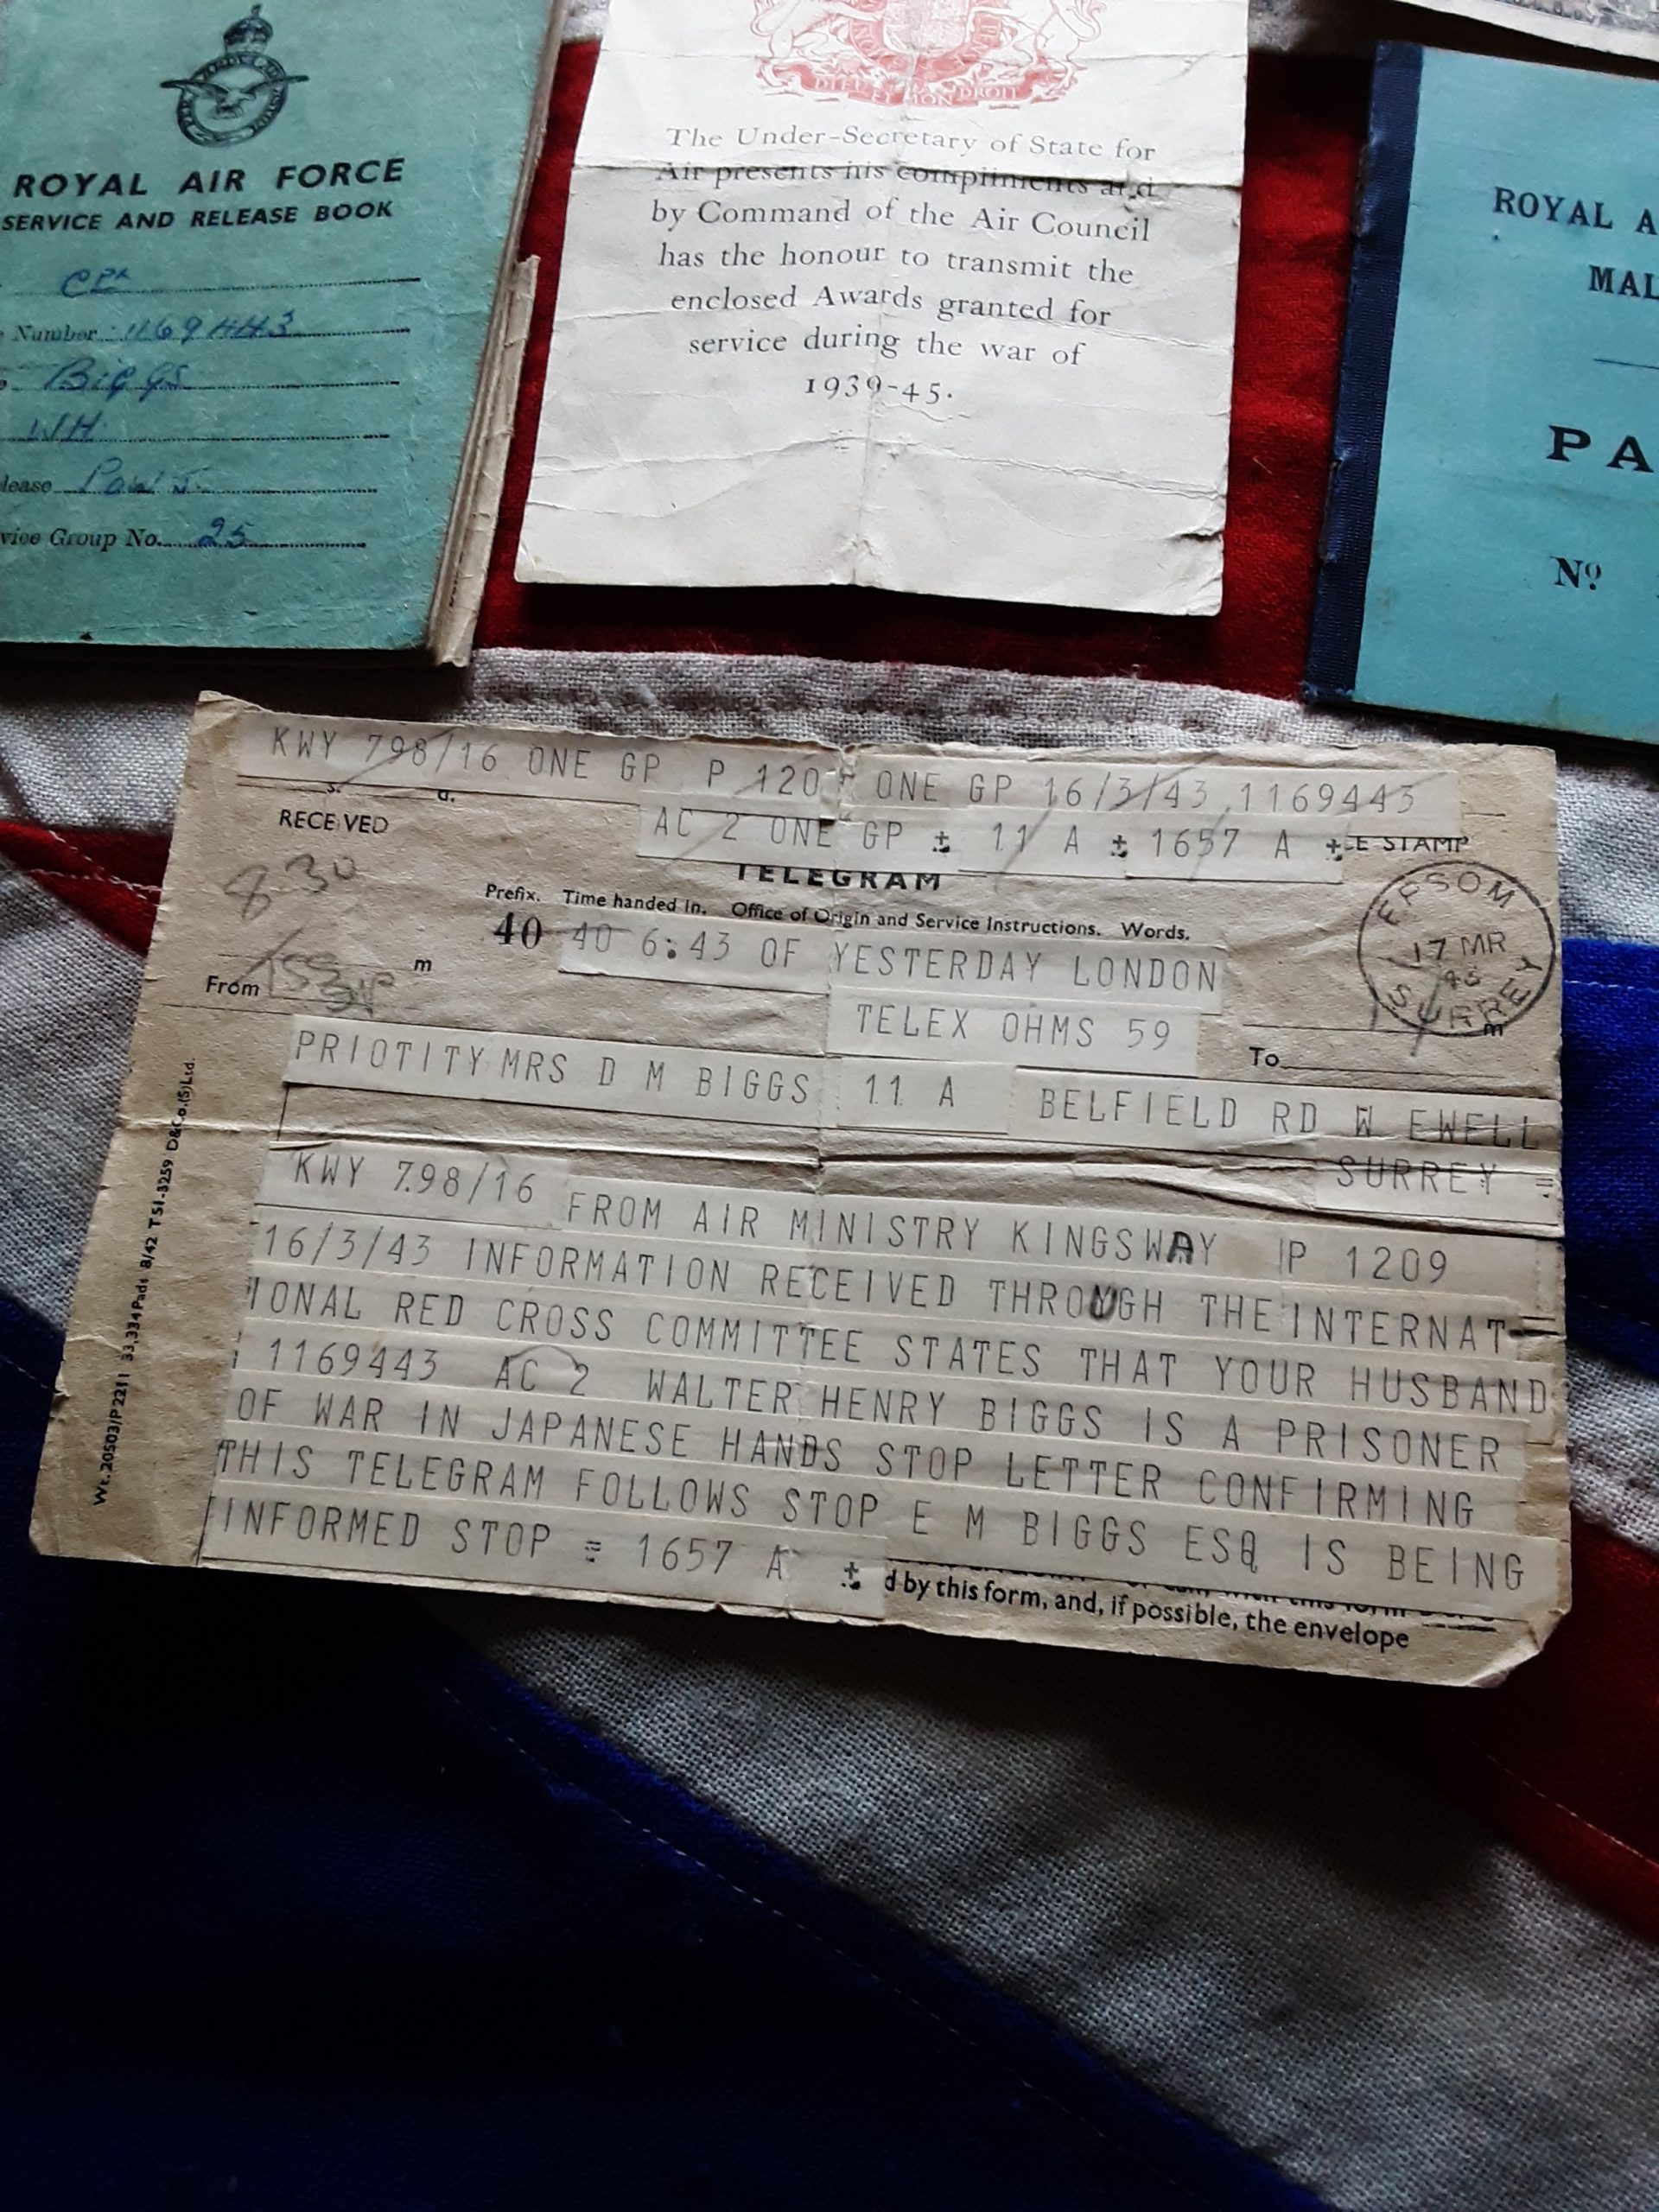 ROYAL AIR FORCE
SERVICE AND RELEASE BOOK
Number 1169443
BIGGS
WH
lease
vice Group No. 25
DIEU ET MON DROIT
The Under-Secretary of State for
Air presents his compliments and
by Command of the Air Council
has the honour to transmit the
enclosed Awards granted for
service during the war of
1939-45.
ROYAL A
MAL
PA
Nº
KWY 798/16 ONE GP P 120 ONE GP 16/3/43 1169443
AC 2 ONE GP ± 11 A ± 1657 A ±
E STAMP
RECEIVED
8.30
TELEGRAM
Prefix. Time handed in. Office of Origin and Service Instructions. Words.
40 40 6:43 OF YESTERDAY LONDON
TELEX OHMS 59
m
From
To
m
EPSOM
17 MR
SURREY
PRIOTITY MRS D M BIGGS 11 A BELFIELD RD W EWELL
SURREY =
KWY 798/16 FROM AIR MINISTRY KINGSWAY P 1209
16/3/43 INFORMATION RECEIVED THROUGH THE INTERNAT-
IONAL RED CROSS COMMITTEE STATES THAT YOUR HUSBAND
1169443 AC 2 WALTER HENRY BIGGS IS A PRISONER
OF WAR IN JAPANESE HANDS STOP LETTER CONFIRMING
THIS TELEGRAM FOLLOWS STOP E M BIGGS ESQ IS BEING
INFORMED STOP = 1657 A ±
d by this form, and, if possible, the envelope
Wt. 20503/P2211 33,334 Pads 8/42 T51-3259 D&Co.(S)Ltd.